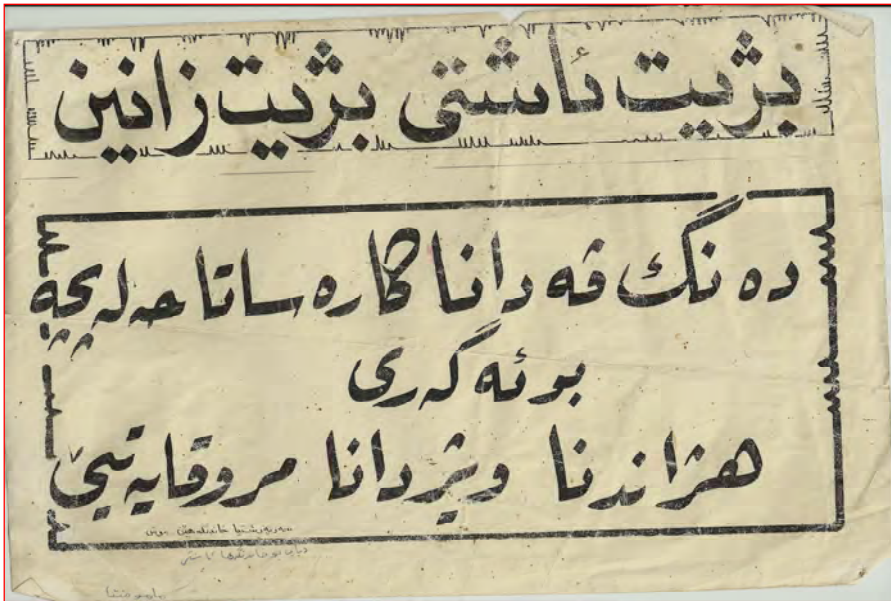 بژیت ئاشتی بژیت زانین
ده نگ ڤه دانا کاره ساتا حه له پچه
بو ئه گه ری
هژاندنا ویژدانا مروڤایه تیێ